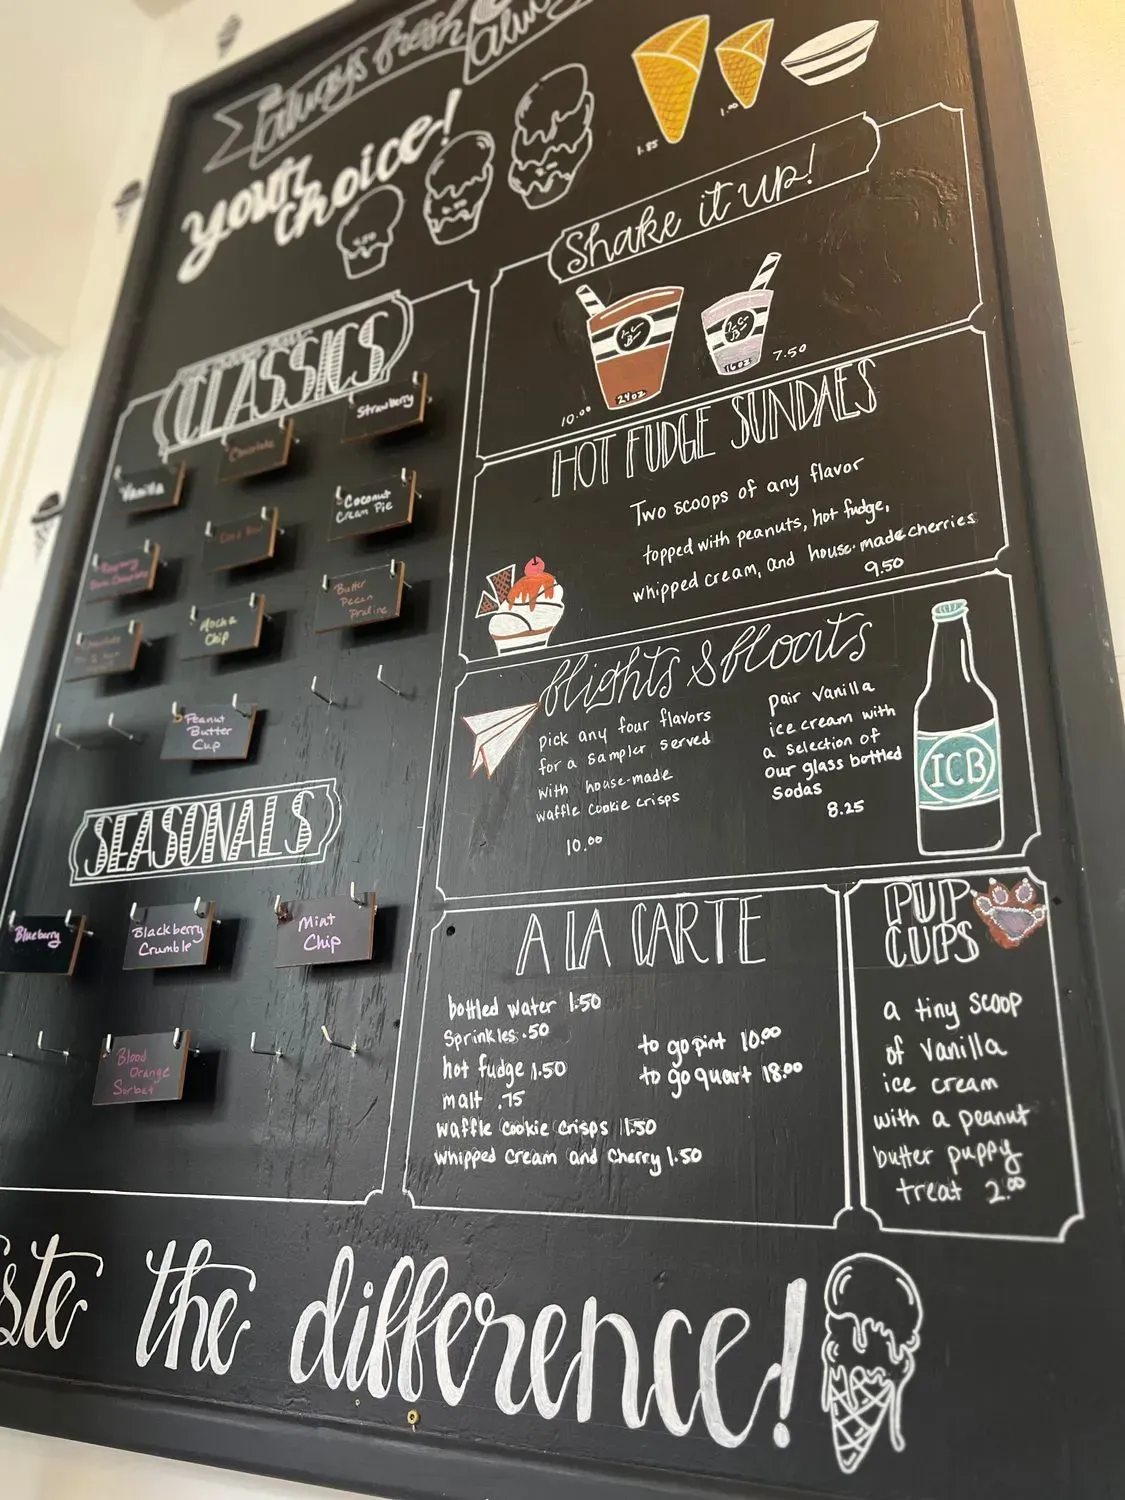 Always fresh
your
choice!
1.85
1.00
Shake it up!
I.C.
B
24oz
10.00
I.C.
B
16oz
7.50
CLASSICS
Strawberry
Chocolate
Vanilla
Coconut
Cream Pie
Butter
Pecan
Praline
Mocha
Chip
Chocolate
Peanut
Butter
Cup
SEASONALS
Blueberry
Blackberry
Crumble
Mint
Chip
Blood
Orange
Sorbet
HOT FUDGE SUNDAES
Two scoops of any flavor
topped with peanuts, hot fudge,
whipped cream, and house-made cherries
9.50
flights & floats
pick any four flavors
for a sampler served
with house-made
waffle cookie crisps
10.00
pair vanilla
ice cream with
a selection of
our glass bottled
sodas
8.25
ICB
A LA CARTE
bottled water 1.50
Sprinkles .50
hot fudge 1.50
malt .75
waffle cookie crisps 1.50
whipped cream and cherry 1.50
to go pint 10.00
to go quart 18.00
PUP
CUPS
a tiny scoop
of vanilla
ice cream
with a peanut
butter puppy
treat 2.00
the difference!